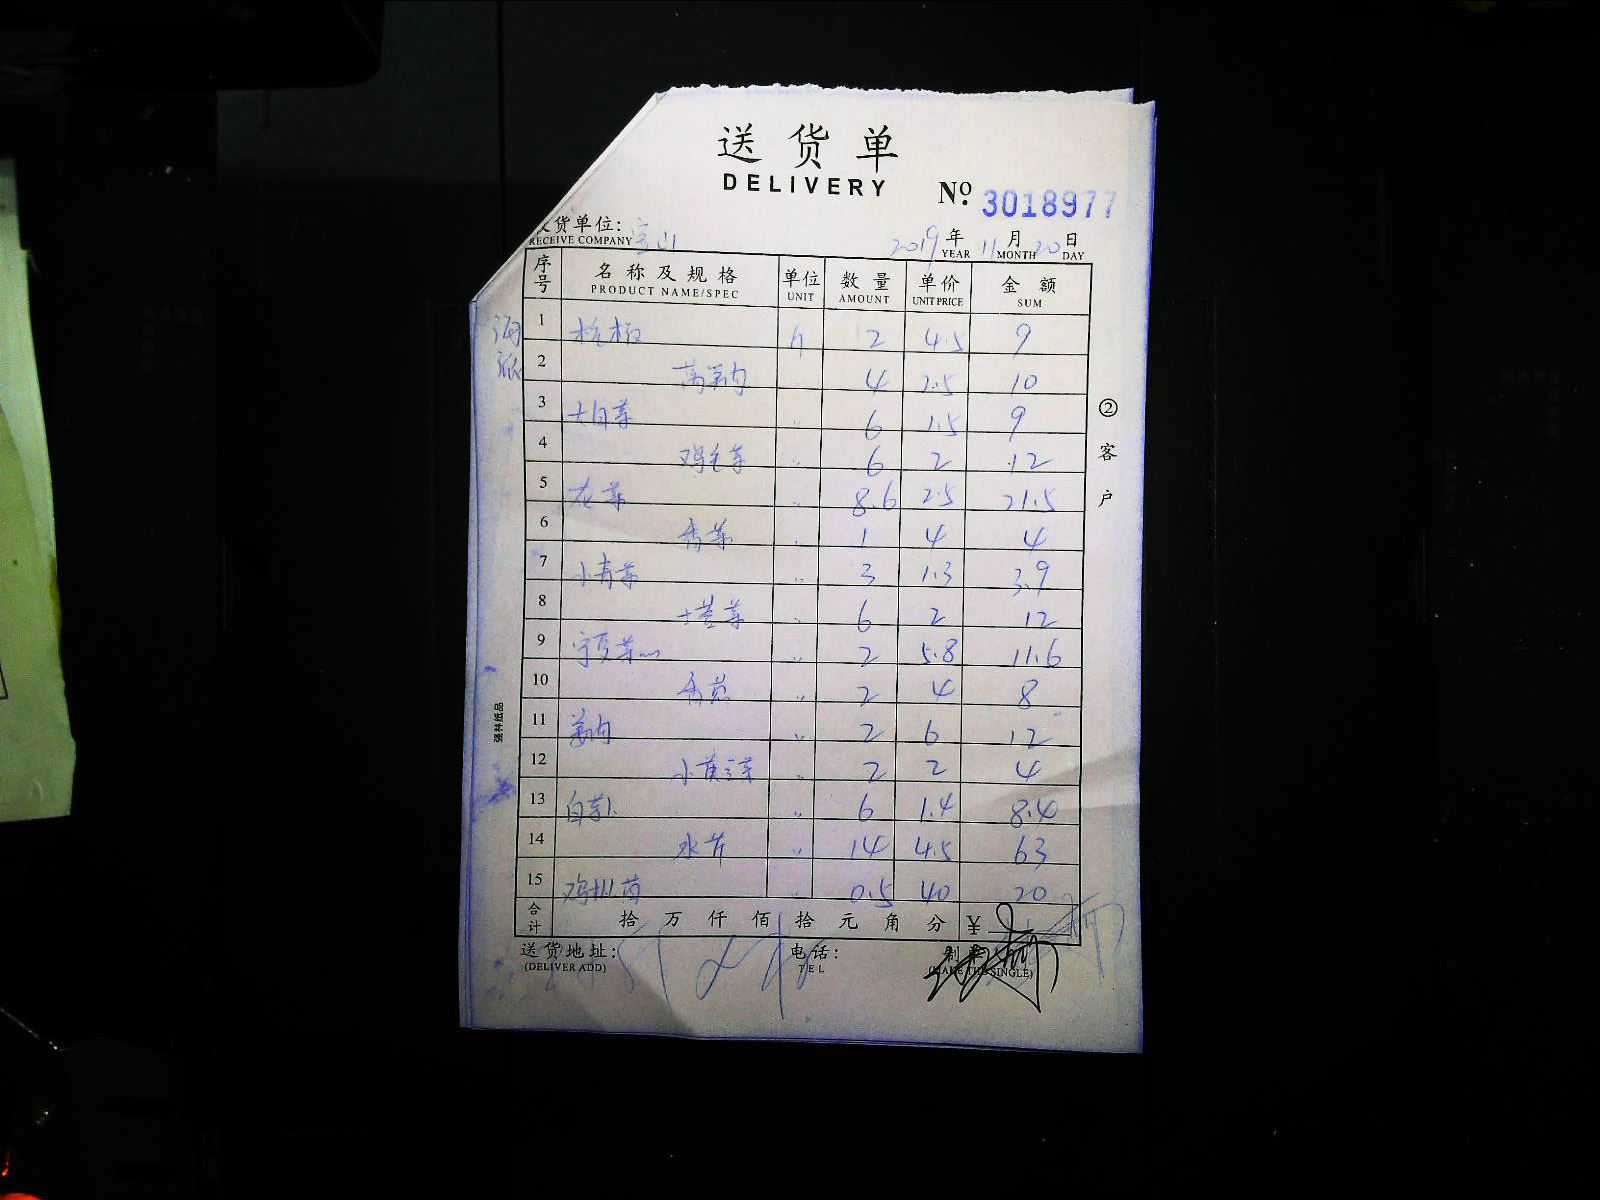 送货单
DELIVERY
№ 3018977
货单位: 宝山
RECEIVE COMPANY
2019 年 11 月 20 日
YEAR MONTH DAY
序号 名称及规格 单位 数量 单价 金额
PRODUCT NAME/SPEC UNIT AMOUNT UNIT PRICE SUM
1 2 4.5 9
2 莴笋肉 4 2.5 10
3 大白菜 〃 6 1.5 9
4 鸡毛菜 〃 6 2 12
5 花菜 〃 8.6 2.5 21.5
6 香菜 〃 1 4 4
7 小青菜 〃 3 1.3 3.9
8 塔菜 〃 6 2 12
9 宁夏菜心 〃 2 5.8 11.6
10 香葱 〃 2 4 8
11 姜肉 〃 2 6 12
12 小黄芽菜 〃 2 2 4
13 白萝卜 〃 6 1.4 8.4
14 水芹 〃 14 4.5 63
15 鸡枞菌 〃 0.5 40 20
合计 拾 万 仟 佰 拾 元 角 分 ¥
送货地址: 电话: 制单
(DELIVER ADD) TEL (MAKE THE SINGLE)
②客户
强林纸品